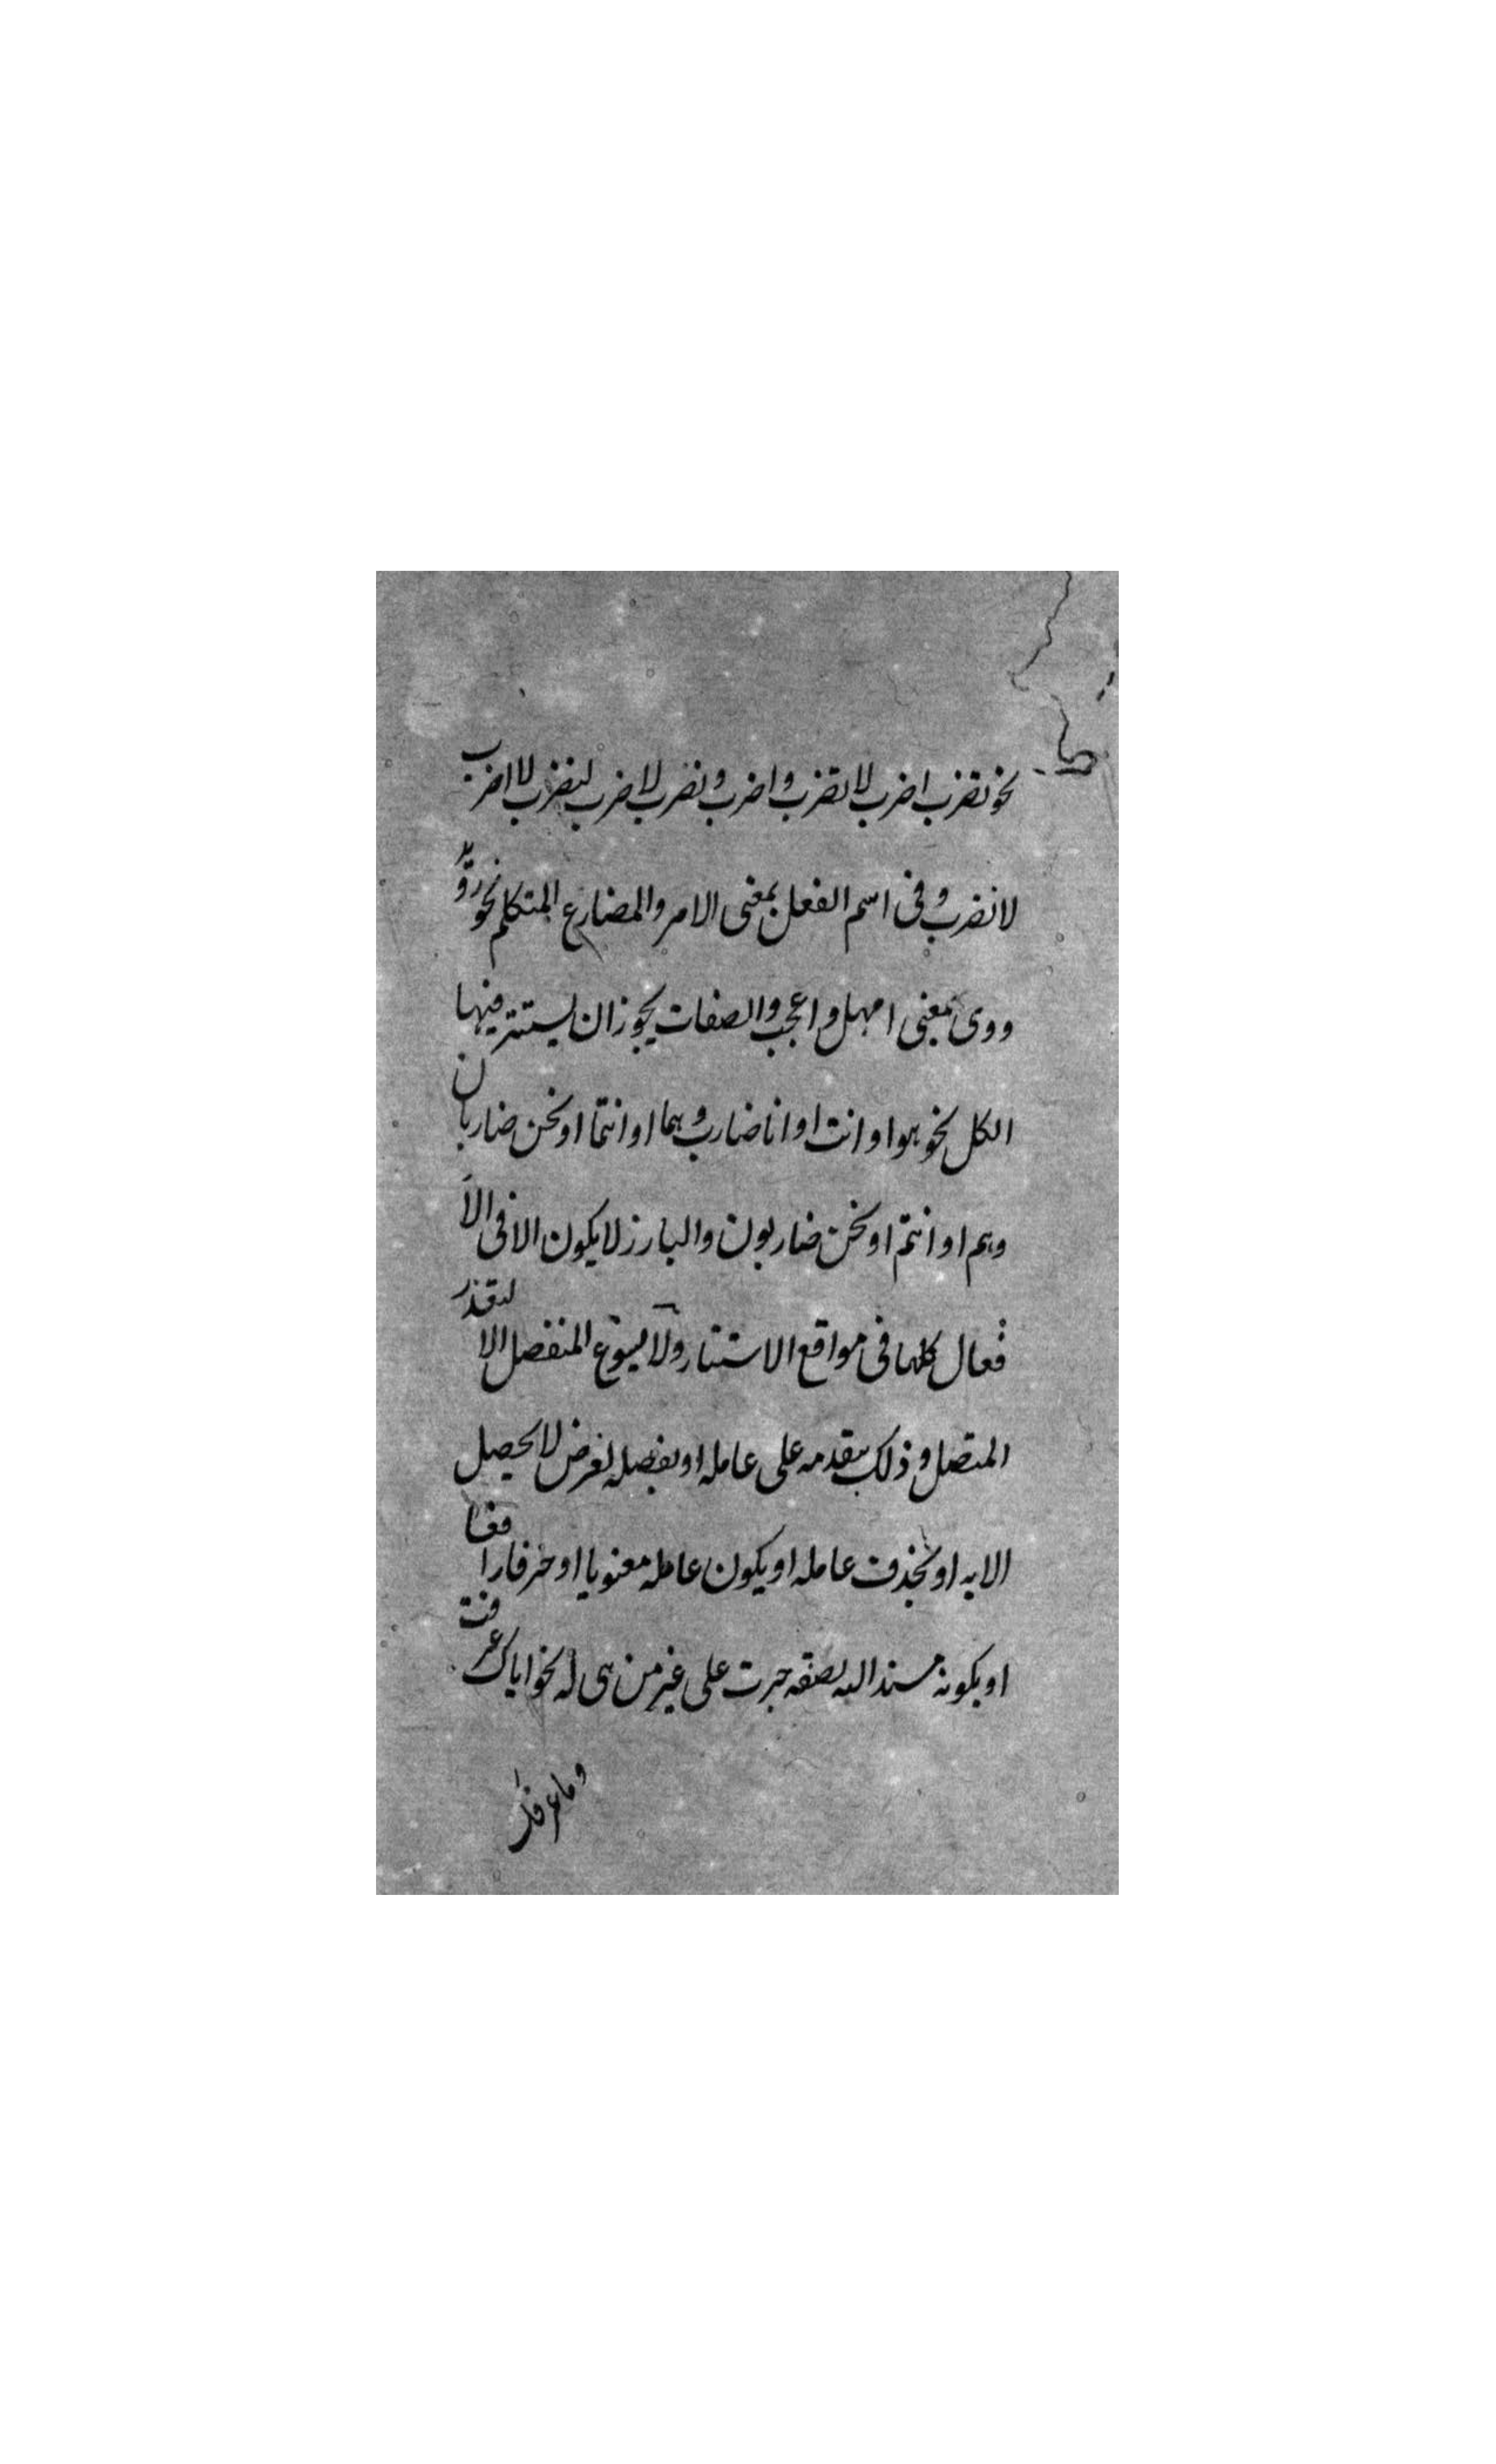 نحو تضرب اضرب لا تضرب و اضرب و نضرب لاضرب لنضرب لا اضرب
لا نضرب و فى اسم الفعل بمعنى الامر والمضارع المتكلم نحو رويد
ووى بمعنى امهل و اعجب والصفات يجوز ان يستتر فيها
الكل نحو هو او انت او انا ضارب و هما او انتما او نحن ضاربان
وهم او انتم او نحن ضاربون والبارز لا يكون الا فى الا
فعال كلها فى مواقع الاستتار ولا يسوغ المنفصل الا لتعذر
المتصل و ذلك بتقدمه على عامله او بفصله لغرض لا يحصل
الا به او بحذف عامله او يكون عامله معنويا او حرفا رافعا
او بكونه مسندا اليه لصفة جرت على غير من هى له نحو اياك عرفت
وما عرفك